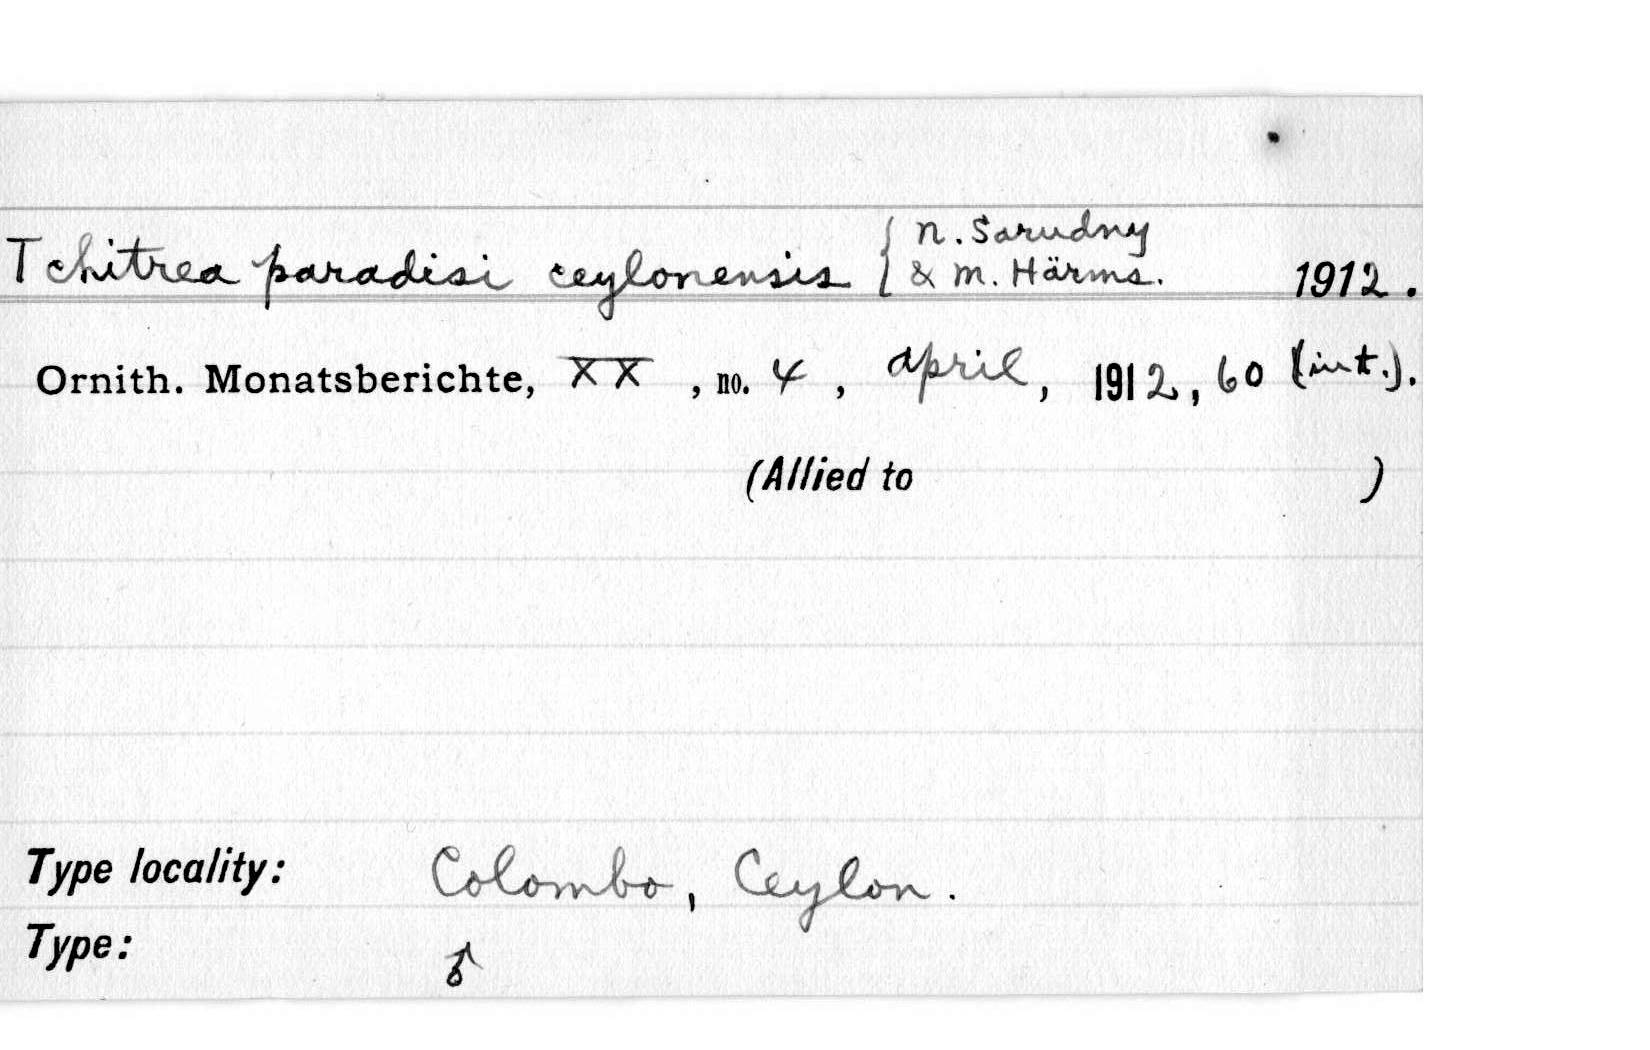 Tchitrea paradisi ceylonensis { N. Sarudny
& M. Härms. 1912.
Ornith. Monatsberichte, XX, no. 4, April, 1912, 60 (int.).
(Allied to )
Type locality: Colombo, Ceylon.
Type: ♂